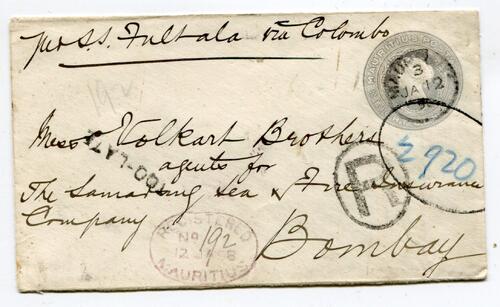 per S.S. Fultala via Colombo
MAURITIUS
3
JA 12
192
Messrs Volkart Brothers
2920
TOO-LATE
agents for
R
The Samarang Sea & Fire Insurance
Company of
REGISTERED
No 192
12 JA 8
MAURITIUS
Bombay